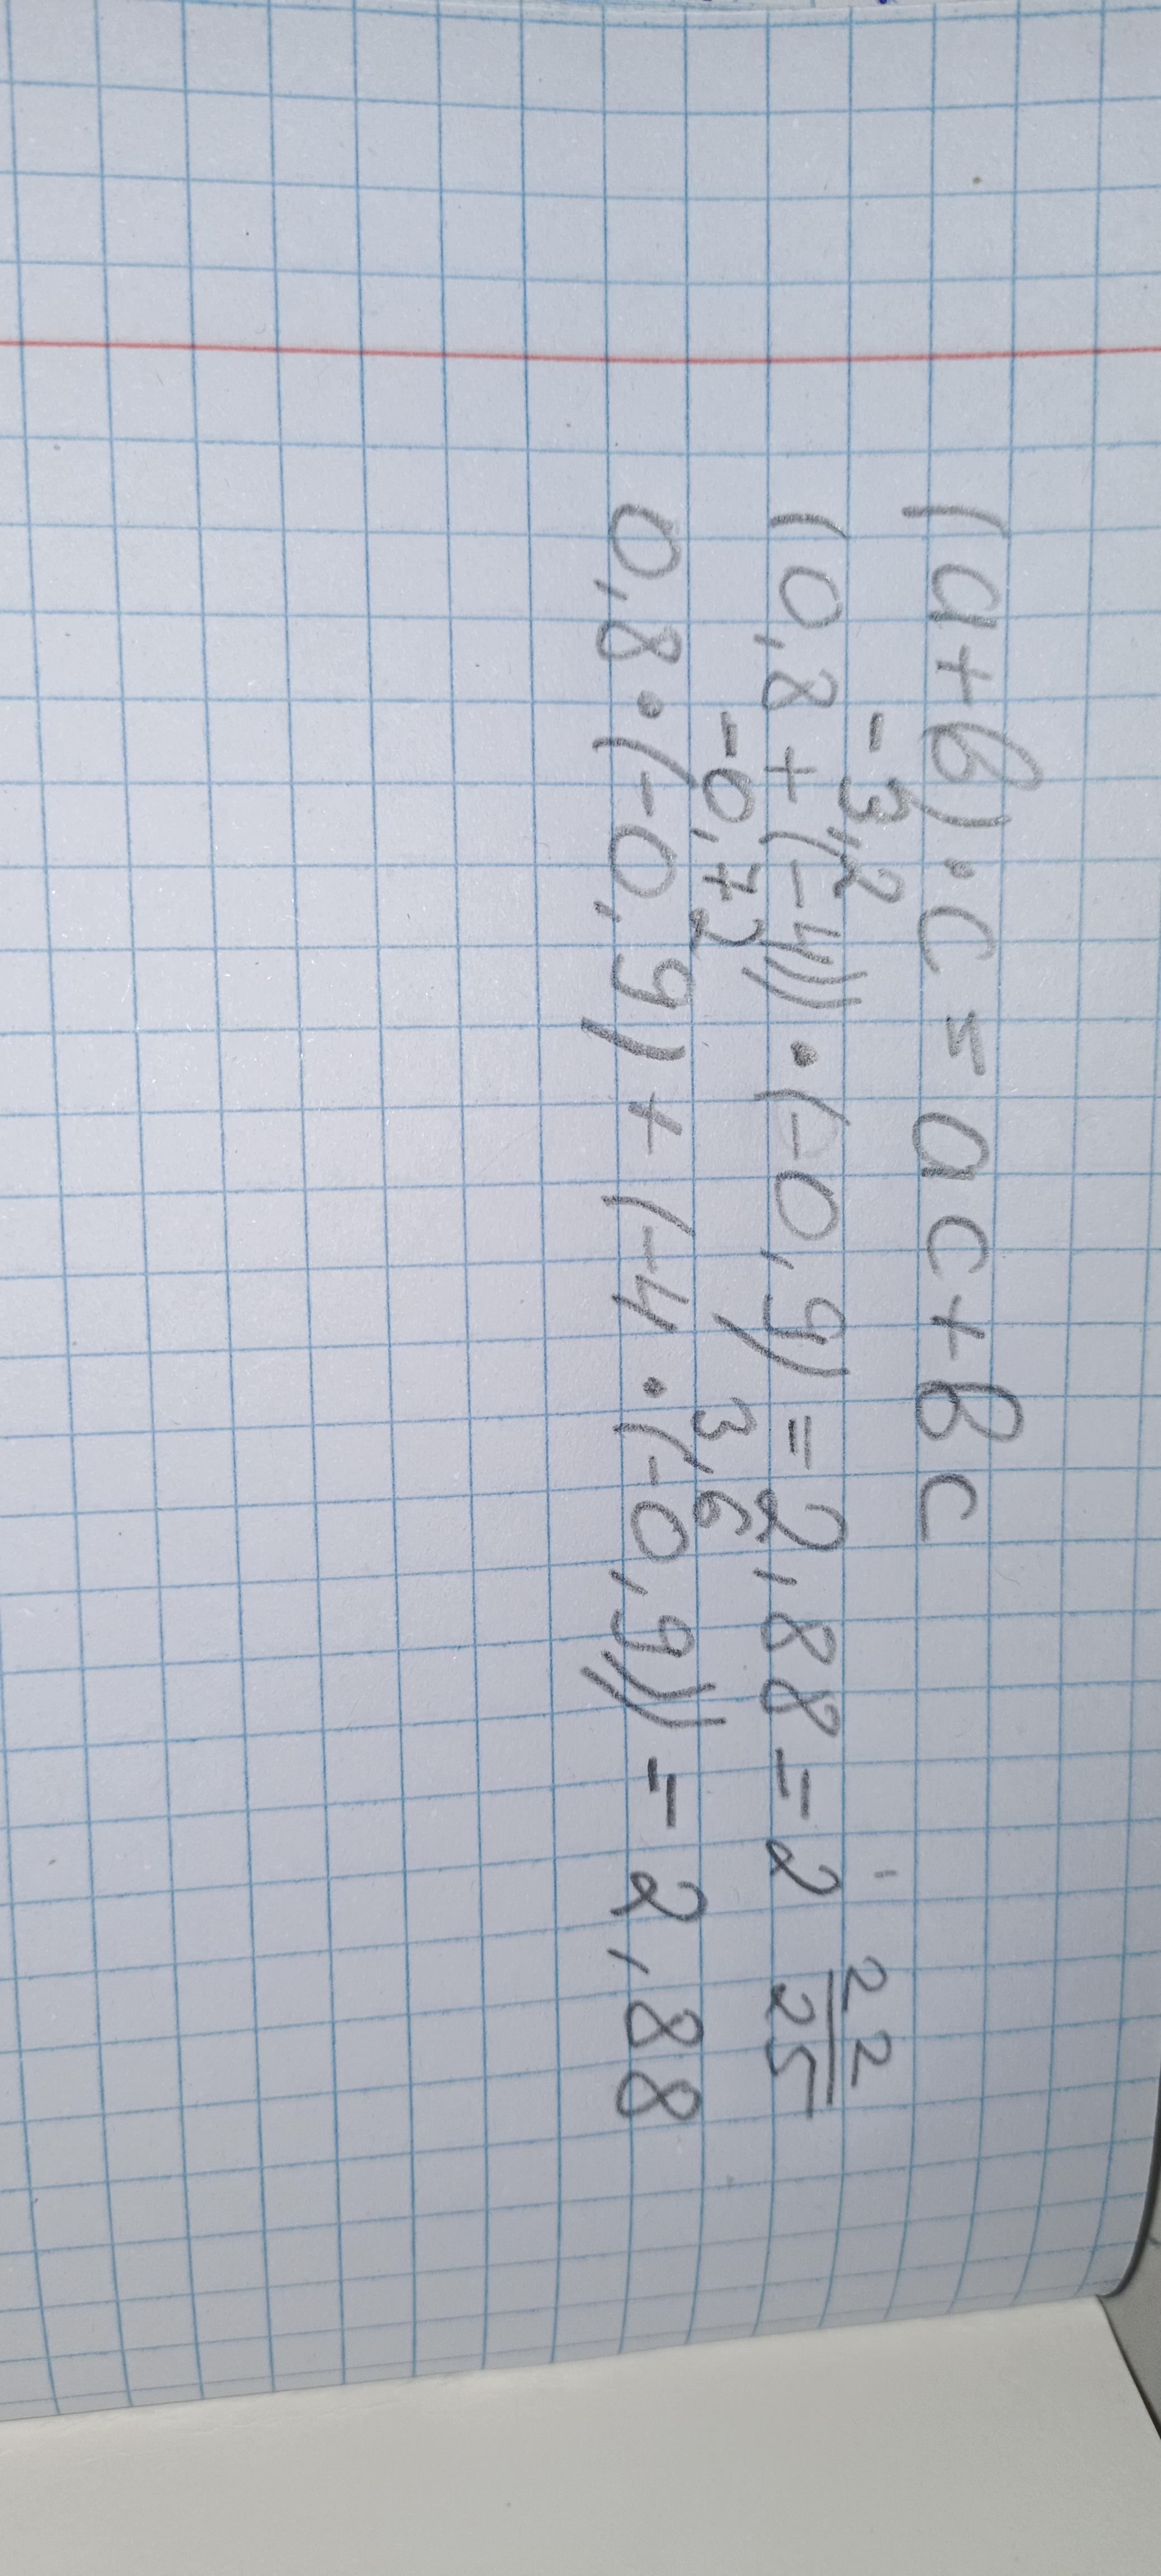 (a+b)·c=ac+bc
-3,2
(0,8+(-4))·(-0,9)=2,88=2 22/25
-0,72 3,6
0,8·(-0,9)+(-4·(-0,9))=2,88